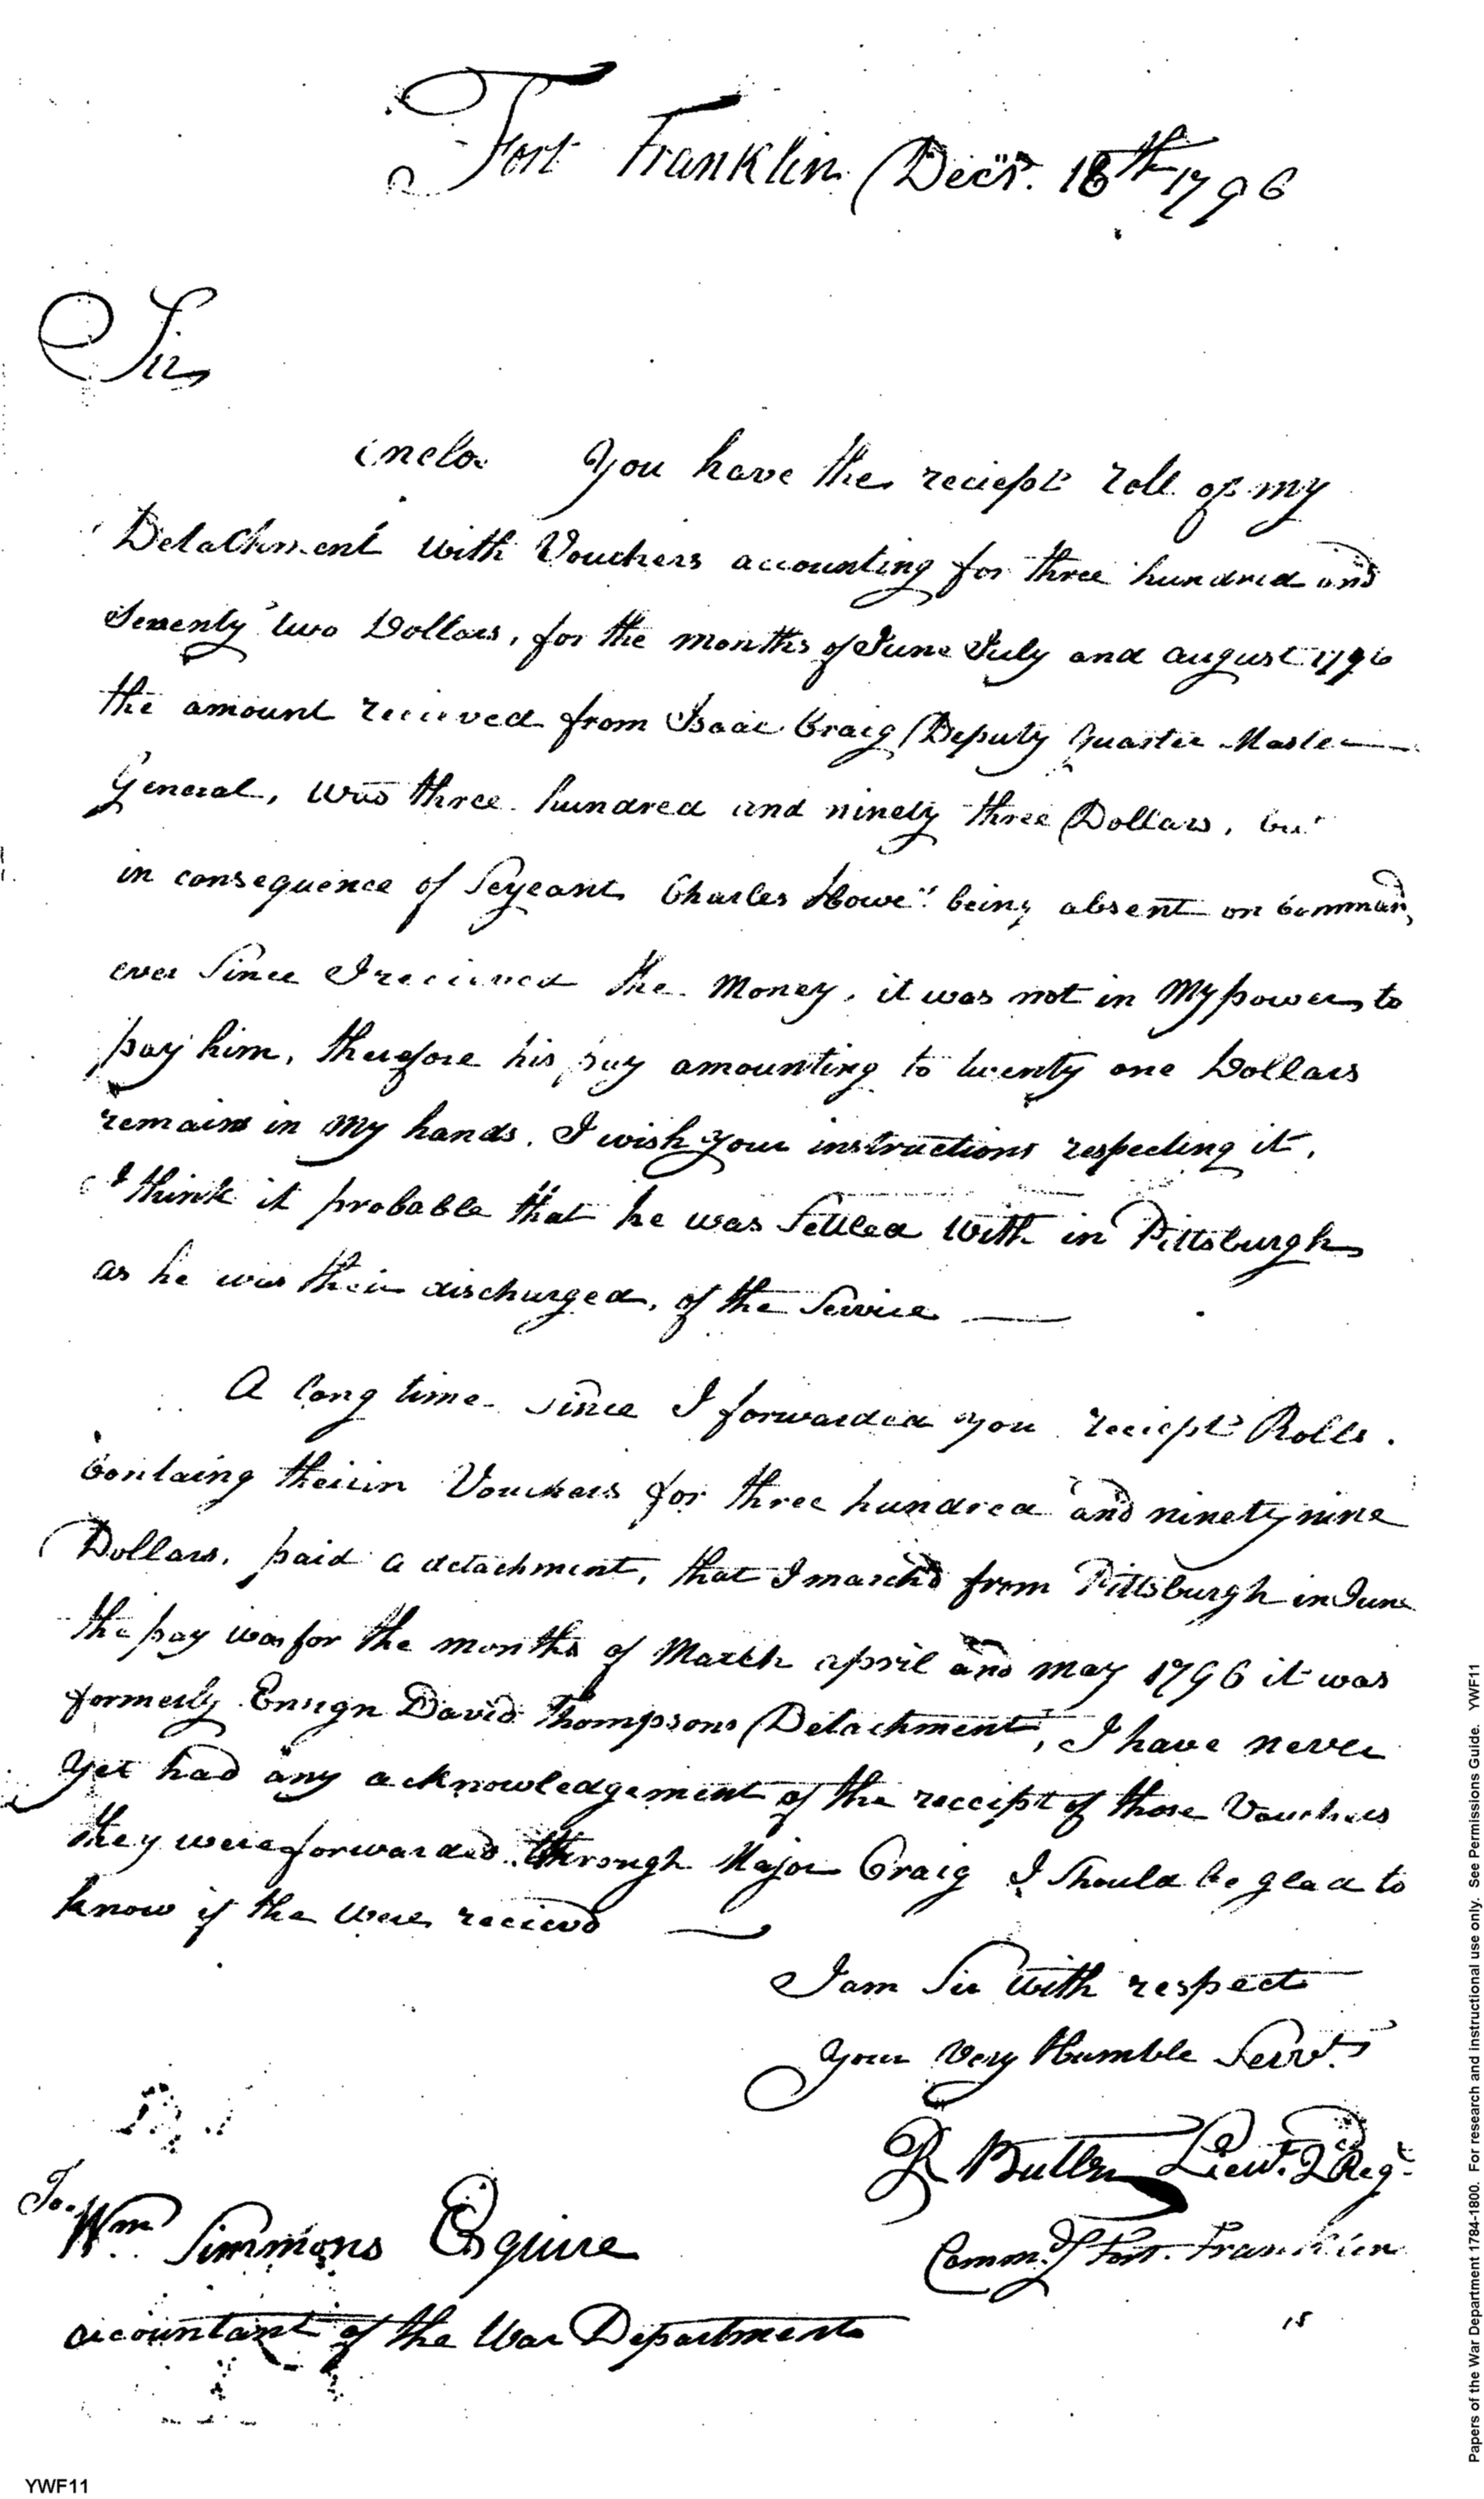 Fort Franklin Decr. 18th 1796
Sir
inclo. You have the reciept roll of my
Detachment with Vouchers accounting for three hundred and
Seventy two Dollars, for the months of June July and august 1796
the amount recieved from Isaac Craig Deputy Quarter Master
General, was three hundred and ninety three Dollars, but
in consequence of Sergeant Charles Howe being absent on Command,
ever Since I recieved the Money, it was not in My power to
pay him, therefore his pay amounting to twenty one Dollars
remains in My hands. I wish your instructions respecting it,
I think it probable that he was Settled With in Pittsburgh
as he was their discharged, of the Service —
A long time Since I forwarded you reciept Rolls.
Containg therein Vouchers for three hundred and ninety nine
Dollars, paid a detachment, that I march'd from Pittsburgh in June
the pay was for the months of March april and may 1796 it was
formerly Ensign David Thompsons Detachment, I have never
yet had any acknowledgement of the receipt of those Vouchers
they were forwarded through Major Craig I Should be glad to
know if the were recievd —
I am Sir With respect
your Very Humble Servt.
R Butler Lieut. 2d Regt
Commd. Fort Franklin
To
Wm Simmons Esquire
accountant of the War Department
15
YWF11
Papers of the War Department 1784-1800. For research and instructional use only. See Permissions Guide. YWF11